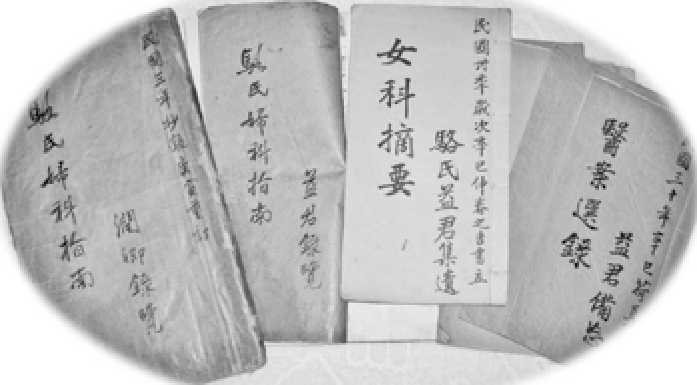 駱民婦科指南
潤卿錄覽
民國三年抄錄
駱民婦科指南
益君錄覽
民國卅年歲次辛巳仲春之吉書立
女科摘要
駱民益君集遺
國三十年辛巳
醫案選錄
益君備